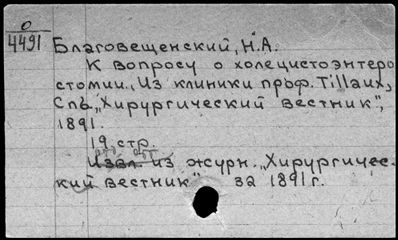 0
4491
Благовещенский, Н.А.
К вопросу о холецистоэнтеро
стомии. Из клиники проф. Tillaux,
Спб, „Хирургический вестник",
1891.
19 стр.
из журн. „Хирургичес-
кий вестник" за 1891 г.